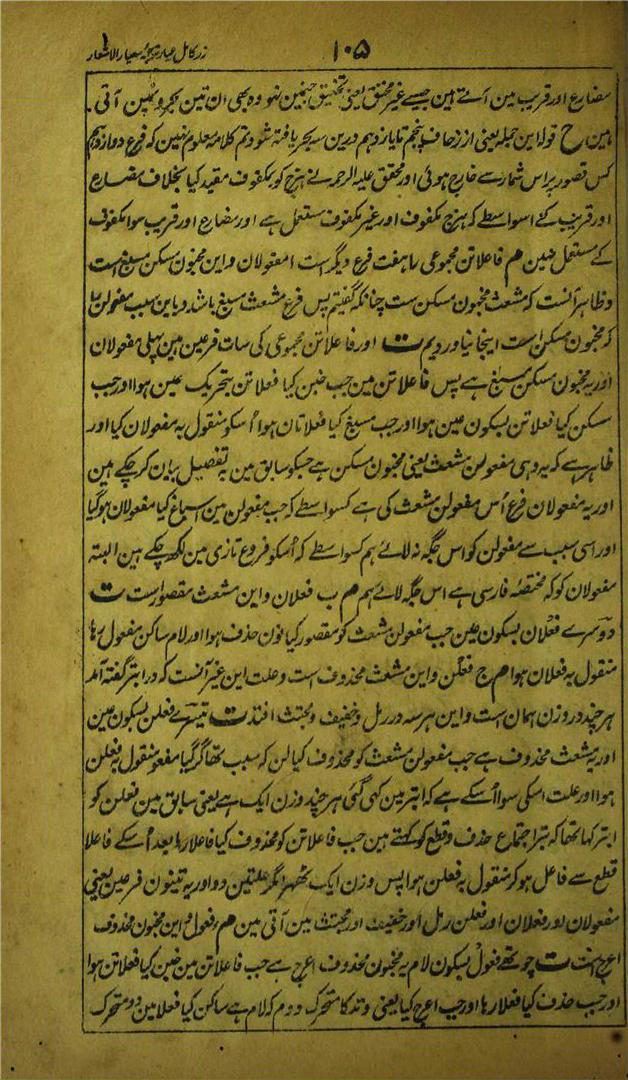 زر کامل عیار ترجمۂ معیار الاشعار
۱۰۵
مضارع اور قریب مین آتے ہین جیسے غیر مخنق یعنی تخنیق جسمین نہو وہ بھی ان تین بحرونمین آتی
ہین ح قولہ این جملہ یعنی از زحاف پنجم تا یازدہم درین سہ بحر یافتہ شود تم کلامہ معلوم نہین کہ فرع دوازدہم
کس قصور پر اس شمار سے خارج ہوئی اور محقق علیہ الرحمہ نے ہزج کو بمکفوف مقید کیا بخلاف مضارع
اور قریب کے اسواسطے کہ ہزج مکفوف اور غیر مکفوف مستعمل ہے اور مضارع اور قریب سوا مکفوف
کے مستعمل نہین م فاعلاتن مجموعی را ہفت فرع دیگر است ا مفعولان و این مخبون مسکن مسبغ است
و ظاہر آنست کہ مشعث مخبون مسکن ست چنانکہ گفتیم پس فرع مشعث مسبغ باشد و باین سبب مفعولن را
کہ مخبون مسکن است اینجا نیاوردیم ت اور فاعلاتن مجموعی کی سات فرعین ہین پہلی مفعولان
اور یہ مخبون مسکن مسبغ ہے پس فاعلاتن مین جب خبن کیا فعلاتن بتحریک عین ہوا اور جب
مسکن کیا فعلاتن بسکون عین ہوا اور جب مسبغ کیا فعلاتان ہوا اُسکو منقول بہ مفعولان کیا اور
ظاہر ہے کہ یہ وہی مفعولن مشعث یعنی مخبون مسکن ہے جسکو سابق مین بہ تفصیل بیان کر چکے ہین
اور یہ مفعولان فرع اُس مفعولن مشعث کی ہے کسواسطے کہ جب مفعولن مین اسباغ کیا مفعولان ہوگیا
اور اسی سبب سے مفعولن کو اس جگہ نہ لائے ہم کسواسطے کہ اُسکو فروع تازی مین لکھ چکے ہین البتہ
مفعولان کو کہ مختصۂ فارسی ہے اس جگہ لائے ہم م ب فعلان و این مشعث مقصور است ت
دوسرے فعلان بسکون عین جب مفعولن مشعث کو مقصور کیا نون حذف ہوا اور لام ساکن مفعول رہا
منقول بہ فعلان ہوا م ج فعلن و این مشعث محذوف است و علت این غیر آنست کہ در ابتر گفتہ آمد
ہر چند در وزن ہمان ست و این ہر سہ در رمل و خفیف و مجتث افتد ت تیسرے فعلن بسکون عین
اور یہ مشعث محذوف ہے جب مفعولن مشعث کو محذوف کیا لن کہ سبب تھا گر گیا مفعو منقول بہ فعلن
ہوا اور علت اسکی سوا اُسکے ہے کہ ابتر مین کہی گئی ہر چند وزن ایک ہے یعنی سابق مین فعلن کو
ابتر کہا تھا کہ بتر اجتماع حذف و قطع کو کہتے ہین جب فاعلاتن کو محذوف کیا فاعلا رہا بعد اُسکے فاعلا
قطع سے فاعل ہو کر منقول بہ فعلن ہوا پس وزن ایک ٹھہرا مگر علتین دو اور یہ تینون فرعین یعنی
مفعولان اور فعلان اور فعلن رمل اور خفیف اور مجتث مین آتی مین م د فعول و این مخبون محذوف
اعرج ہست ت چوتھے فعول بسکون لام یہ مخبون محذوف اعرج ہے جب فاعلاتن مین خبن کیا فعلاتن ہوا
اور جب حذف کیا فعلا رہا اور جب اعرج کیا یعنی وتد کا متحرک دوم کہ لام ہے ساکن کیا فعلا مین دو متحرک